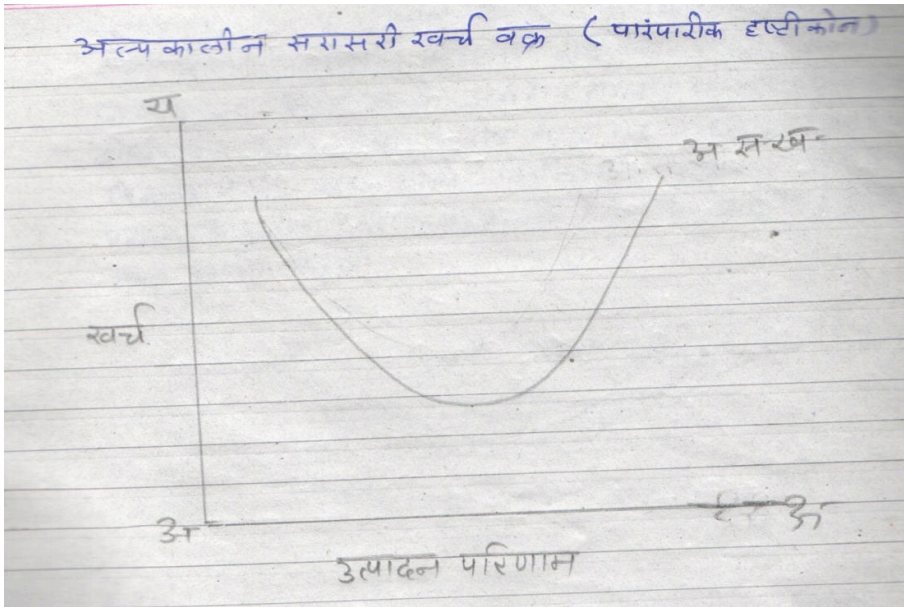 अल्पकालीन सरासरी खर्च वक्र (पारंपारीक दृष्टीकोन)
य
अ स ख
खर्च
अ
उत्पादन परिणाम